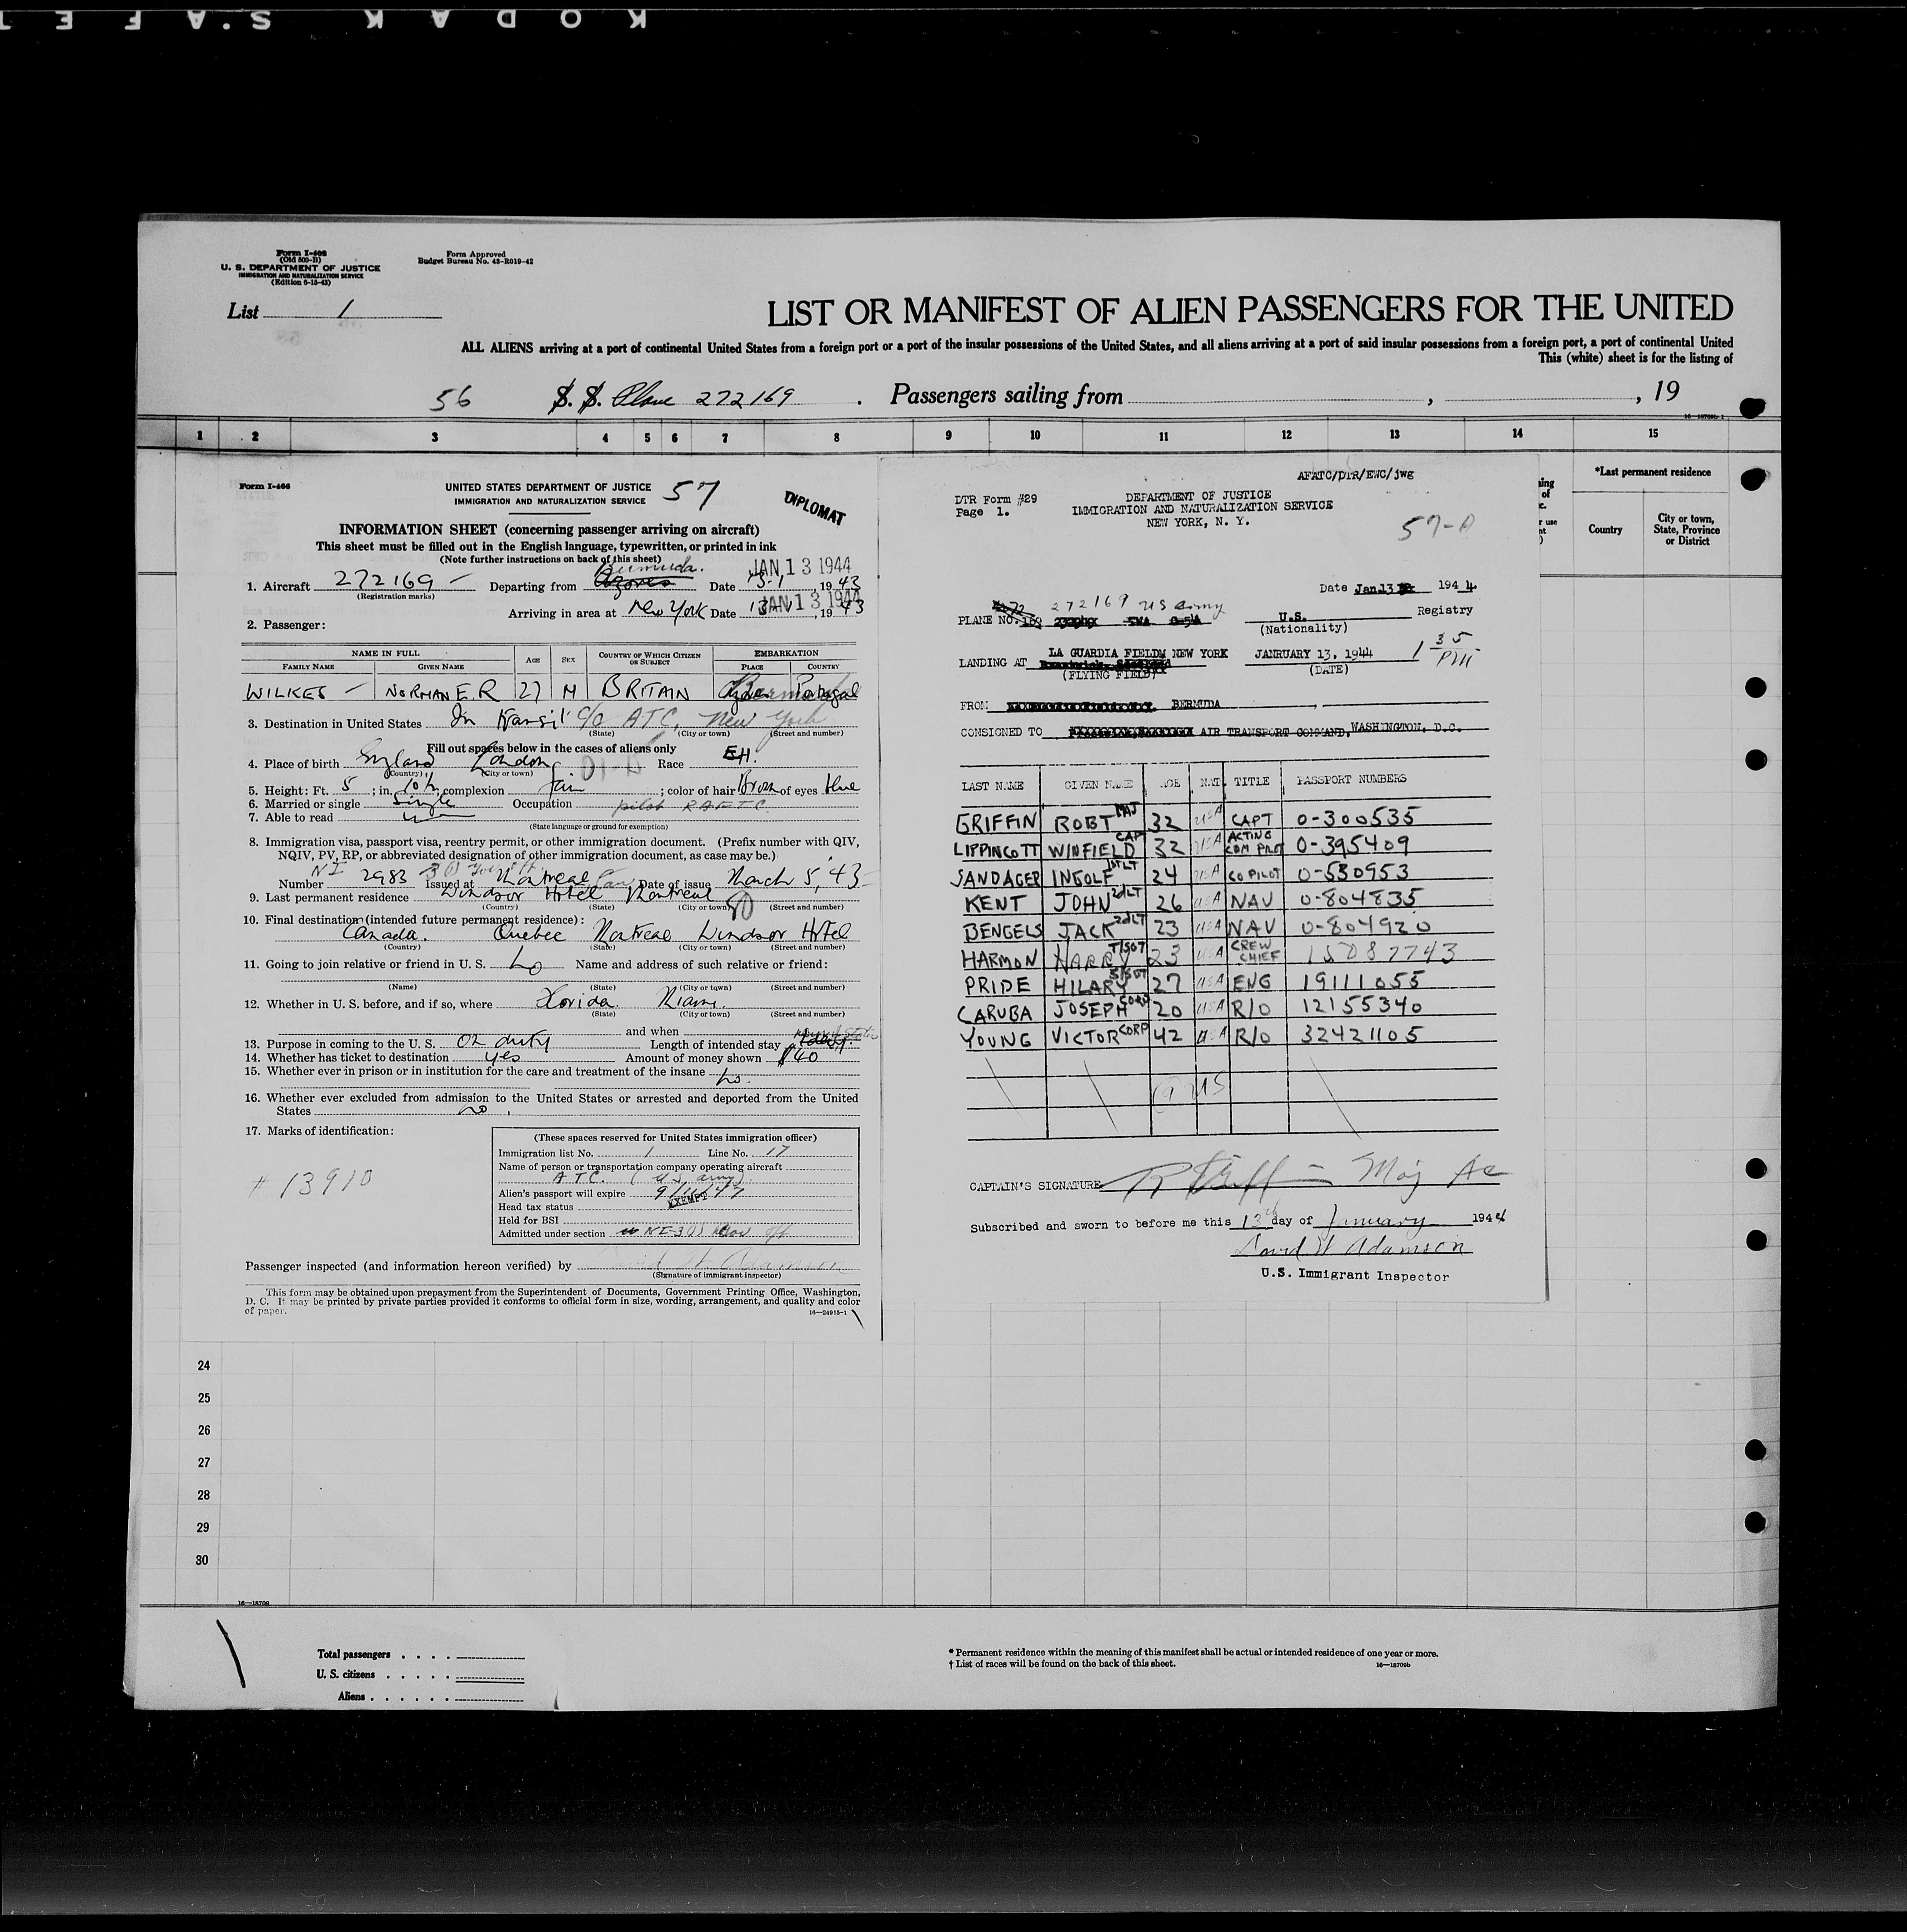 KODAK SAFE
Form I-408
(Old 500-B)
U. S. DEPARTMENT OF JUSTICE
IMMIGRATION AND NATURALIZATION SERVICE
(Edition 6-15-43)
Form Approved
Budget Bureau No. 43-R019-42
List 1
LIST OR MANIFEST OF ALIEN PASSENGERS FOR THE UNITED
ALL ALIENS arriving at a port of continental United States from a foreign port or a port of the insular possessions of the United States, and all aliens arriving at a port of said insular possessions from a foreign port, a port of continental United
This (white) sheet is for the listing of
56 S. S. Plane 272169 . Passengers sailing from , , 19
1 2 3 4 5 6 7 8 9 10 11 12 13 14 15
Form I-466
UNITED STATES DEPARTMENT OF JUSTICE
IMMIGRATION AND NATURALIZATION SERVICE
57
DIPLOMAT
INFORMATION SHEET (concerning passenger arriving on aircraft)
This sheet must be filled out in the English language, typewritten, or printed in ink
(Note further instructions on back of this sheet)
Bermuda. JAN 13 1944
1. Aircraft 272169 — Departing from Azores Date 13-1 1943
(Registration marks)
JAN 13 1944
Arriving in area at New York Date 13 , 1943
2. Passenger:
NAME IN FULL AGE SEX COUNTRY OF WHICH CITIZEN OR SUBJECT EMBARKATION
FAMILY NAME GIVEN NAME PLACE COUNTRY
WILKES — NORMAN E.R 27 M BRITAIN Bermuda Portugal
3. Destination in United States In transit c/o ATC, New York
(State) (City or town) (Street and number)
Fill out spaces below in the cases of aliens only
4. Place of birth England London Race EH.
(Country) (City or town)
5. Height: Ft. 5 ; in. 10½ complexion fair ; color of hair Brown of eyes blue
6. Married or single Single Occupation pilot RAFTC
7. Able to read
(State language or ground for exemption)
8. Immigration visa, passport visa, reentry permit, or other immigration document. (Prefix number with QIV,
NQIV, PV, RP, or abbreviated designation of other immigration document, as case may be.)
Number NI 2983 Issued at Montreal Can Date of issue March 5, 43
9. Last permanent residence Windsor Hotel Montreal
(Country) (State) (City or town) (Street and number)
10. Final destination (intended future permanent residence):
Canada. Quebec Montreal Windsor Hotel
(Country) (State) (City or town) (Street and number)
11. Going to join relative or friend in U. S. No Name and address of such relative or friend:
(Name) (State) (City or town) (Street and number)
12. Whether in U. S. before, and if so, where Florida Miami
(State) (City or town)
and when
13. Purpose in coming to the U. S. on duty Length of intended stay
14. Whether has ticket to destination yes Amount of money shown $40
15. Whether ever in prison or in institution for the care and treatment of the insane no.
16. Whether ever excluded from admission to the United States or arrested and deported from the United
States no.
17. Marks of identification:
# 13910
(These spaces reserved for United States immigration officer)
Immigration list No. 1 Line No. 17
Name of person or transportation company operating aircraft
A T C. (U.S. army)
Alien's passport will expire
Head tax status EXEMPT
Held for BSI
Admitted under section NI-3(1)
Passenger inspected (and information hereon verified) by David H. Adamson
(Signature of immigrant inspector)
This form may be obtained upon prepayment from the Superintendent of Documents, Government Printing Office, Washington,
D. C. It may be printed by private parties provided it conforms to official form in size, wording, arrangement, and quality and color
of paper. 16—24915-1
AFATC/DTR/EWC/jwg
DTR Form #29
Page 1.
DEPARTMENT OF JUSTICE
IMMIGRATION AND NATURALIZATION SERVICE
NEW YORK, N. Y.
Date Jan.13 1944
272169 US Army
PLANE NO. U.S. Registry
(Nationality)
LANDING AT LA GUARDIA FIELD NEW YORK JANRUARY 13, 1944 1 35 PM
(FLYING FIELD) (DATE)
FROM BERMUDA
CONSIGNED TO AIR TRANSPORT COMMAND, WASHINGTON, D.C.
LAST NAME GIVEN NAME AGE NAT. TITLE PASSPORT NUMBERS
GRIFFIN ROBT MAJ 32 USA CAPT 0-300535
LIPPINCOTT WINFIELD CAP 32 USA ACTING COM PILOT 0-395409
SANDAGER INGOLF 1ST LT 24 USA CO PILOT 0-530953
KENT JOHN 2d LT 26 USA NAV 0-804835
BENGELS JACK 2d LT 23 USA NAV 0-804920
HARMON HARRY T/SGT 23 USA CREW CHIEF 15087743
PRIDE HILARY S/SGT 27 USA ENG 19111055
CARUBA JOSEPH CORP 20 USA R/O 12155340
YOUNG VICTOR CORP 42 USA R/O 32421105
9 US
CAPTAIN'S SIGNATURE R Griffin Maj Ac
Subscribed and sworn to before me this 13th day of January 1944
David H Adamson
U.S. Immigrant Inspector
*Last permanent residence
Country
City or town, State, Province or District
24
25
26
27
28
29
30
16—18709
Total passengers . . . .
U. S. citizens . . . . .
Aliens . . . . . .
* Permanent residence within the meaning of this manifest shall be actual or intended residence of one year or more.
† List of races will be found on the back of this sheet. 16—18709b